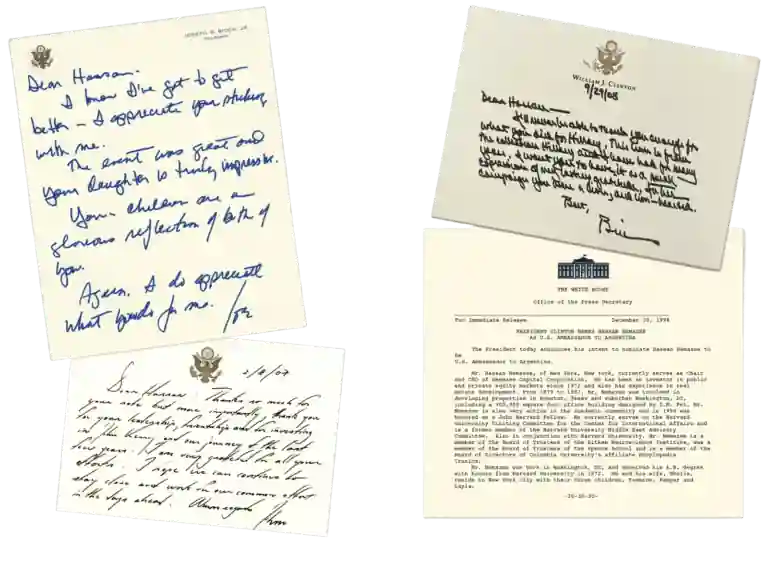 JOSEPH R. BIDEN, JR.
Dear Hassan.
I know I've got to get
better - I appreciate your sticking
with me.
The event was great and
your daughter is truly impressive.
Your children are a
glorious reflection of both of
you.
Again, I do appreciate
what you do for me.
Joe
WILLIAM J. CLINTON
9/29/08
Dear Hassan—
I'll never be able to thank you enough for
what you did for Hillary. This
the collection Hillary and I have had for many
years. I want you to have it as a small
expression of our lasting gratitude, for the
campaign you
Best,
Bill
2/8/07
Dear Hassan: Thanks so much for
your note but more importantly, thank you
for your leadership, friendship and for investing
in
few years. I am very grateful for all your
efforts. I hope we can continue to
stay close and work on our common effort
in the days ahead.
THE WHITE HOUSE
Office of the Press Secretary
For Immediate Release December 30, 1998
PRESIDENT CLINTON NAMES HASSAN NEMAZEE
AS U.S. AMBASSADOR TO ARGENTINA
The President today announced his intent to nominate Hassan Nemazee to
be
U.S. Ambassador to Argentina.
Mr. Hassan Nemazee, of New York, New York, currently serves as Chair
and CEO of Nemazee Capital Corporation. He has been an investor in public
and private equity markets since 1972 and also has experience in real
estate development. From 1979 to 1987, Mr. Nemazee was involved in
developing properties in Houston, Texas and suburban Washington, DC,
including a 700,000 square foot office building designed by I.M. Pei. Mr.
Nemazee is also very active in the academic community and in 1996 was
honored as a John Harvard Fellow. He currently serves on the Harvard
University Visiting Committee for the Center for International Affairs and
is a former member of the Harvard University Middle East Advisory
Committee. Also in conjunction with Harvard University, Mr. Nemazee is a
member of the Board of Trustees of the Eithem Neuroscience Institute, was a
member of the Board of Trustees of the Spence School and is a member of the
Board of Directors of Columbia University's affiliate Encyclopedia
Iranica.
Mr. Nemazee was born in Washington, DC, and received his A.B. degree
with honors from Harvard University in 1972. He and his wife, Sheila,
reside in New York City with their three children, Yasmine, Kamyar and
Layla.
-30-30-30-